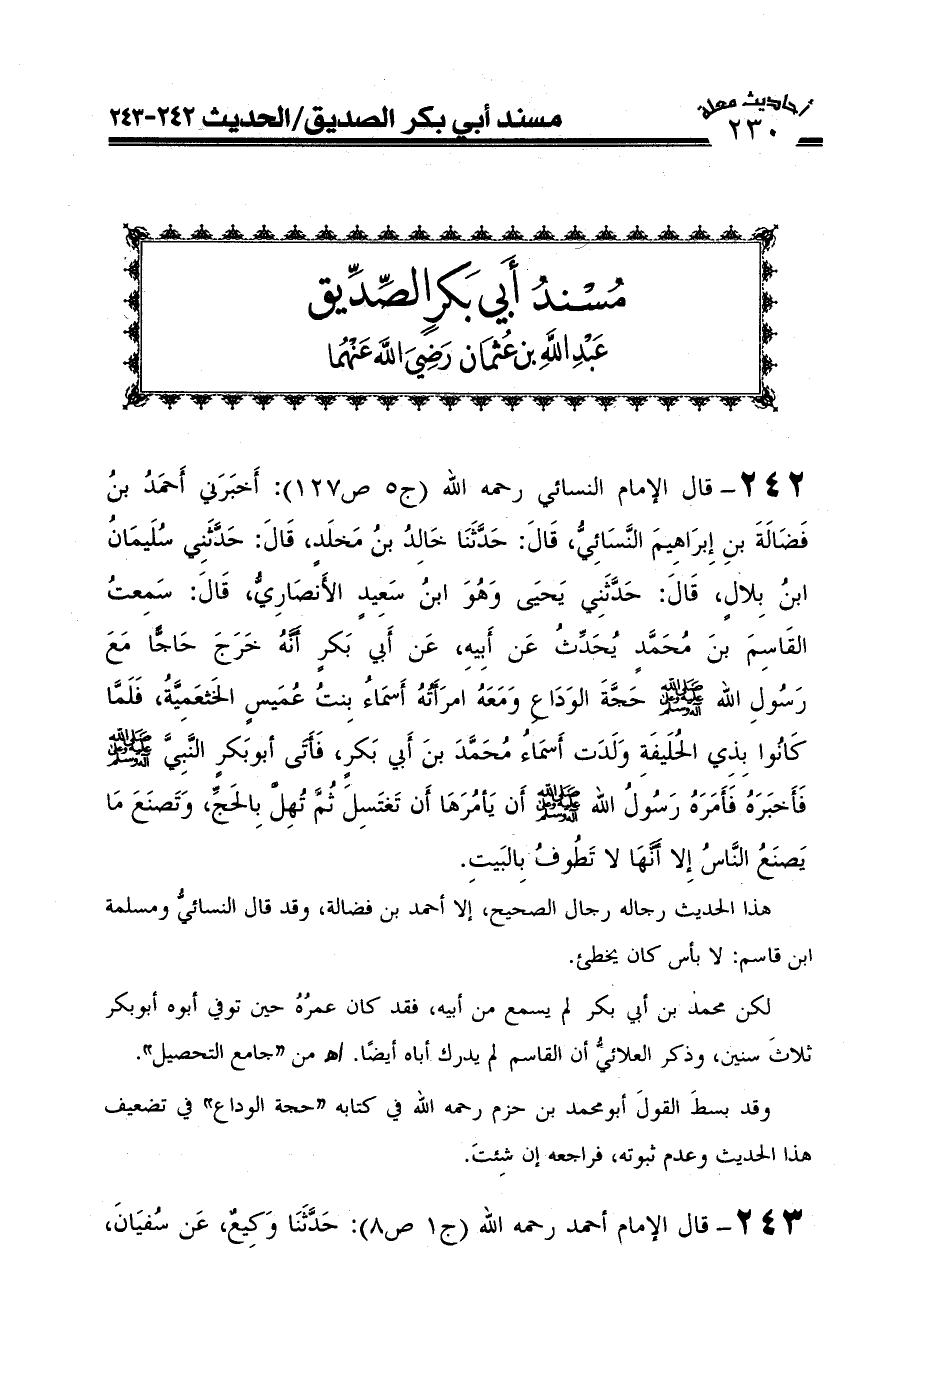 أحاديث معلة
٢٣٠
مسند أبي بكر الصديق/الحديث ٢٤٢-٢٤٣
مُسْنَدُ أَبِي بَكرٍ الصِّدِّيق
عَبْدِ اللَّهِ بن عُثمان رَضِيَ اللَّه عَنْهُما
٢٤٢ـ قال الإمام النسائي رحمه الله (ج٥ ص١٢٧): أَخبَرَنِي أَحمَدُ بنُ
فَضَالَةَ بنِ إِبرَاهِيمَ النَّسَائِيُّ، قَالَ: حَدَّثَنَا خَالِدُ بنُ مَخلَدٍ، قَالَ: حَدَّثَنِي سُلَيمَانُ
ابنُ بِلالٍ، قَالَ: حَدَّثَنِي يَحيَى وَهُوَ ابنُ سَعِيدٍ الأَنصَارِيُّ، قَالَ: سَمِعتُ
القَاسِمَ بنَ مُحَمَّدٍ يُحَدِّثُ عَن أَبِيهِ، عَن أَبِي بَكرٍ أَنَّهُ خَرَجَ حَاجًّا مَعَ
رَسُولِ الله ﷺ حَجَّةَ الوَدَاعِ وَمَعَهُ امرَأَتُهُ أَسمَاءُ بِنتُ عُمَيسٍ الخَثعَمِيَّةُ، فَلَمَّا
كَانُوا بِذِي الحُلَيفَةِ وَلَدَت أَسمَاءُ مُحَمَّدَ بنَ أَبِي بَكرٍ، فَأَتَى أَبوبَكرٍ النَّبِيَّ ﷺ
فَأَخبَرَهُ فَأَمَرَهُ رَسُولُ الله ﷺ أَن يَأمُرَهَا أَن تَغتَسِلَ ثُمَّ تُهِلَّ بِالحَجِّ، وَتَصنَعَ مَا
يَصنَعُ النَّاسُ إِلا أَنَّهَا لا تَطُوفُ بِالبَيتِ.
هذا الحديث رجاله رجال الصحيح، إلا أحمد بن فضالة، وقد قال النسائيُّ ومسلمة
ابن قاسم: لا بأس كان يخطئ.
لكن محمدَ بن أبي بكر لم يسمع من أبيه، فقد كان عمرُهُ حين توفي أبوه أبوبكر
ثلاثَ سنين، وذكر العلائيُّ أن القاسم لم يدرك أباه أيضًا. اهـ من «جامع التحصيل».
وقد بسطَ القولَ أبومحمد بن حزم رحمه الله في كتابه «حجة الوداع» في تضعيف
هذا الحديث وعدم ثبوته، فراجعه إن شِئتَ.
٢٤٣ـ قال الإمام أحمد رحمه الله (ج١ ص٨): حَدَّثَنَا وَكِيعٌ، عَن سُفيَانَ،